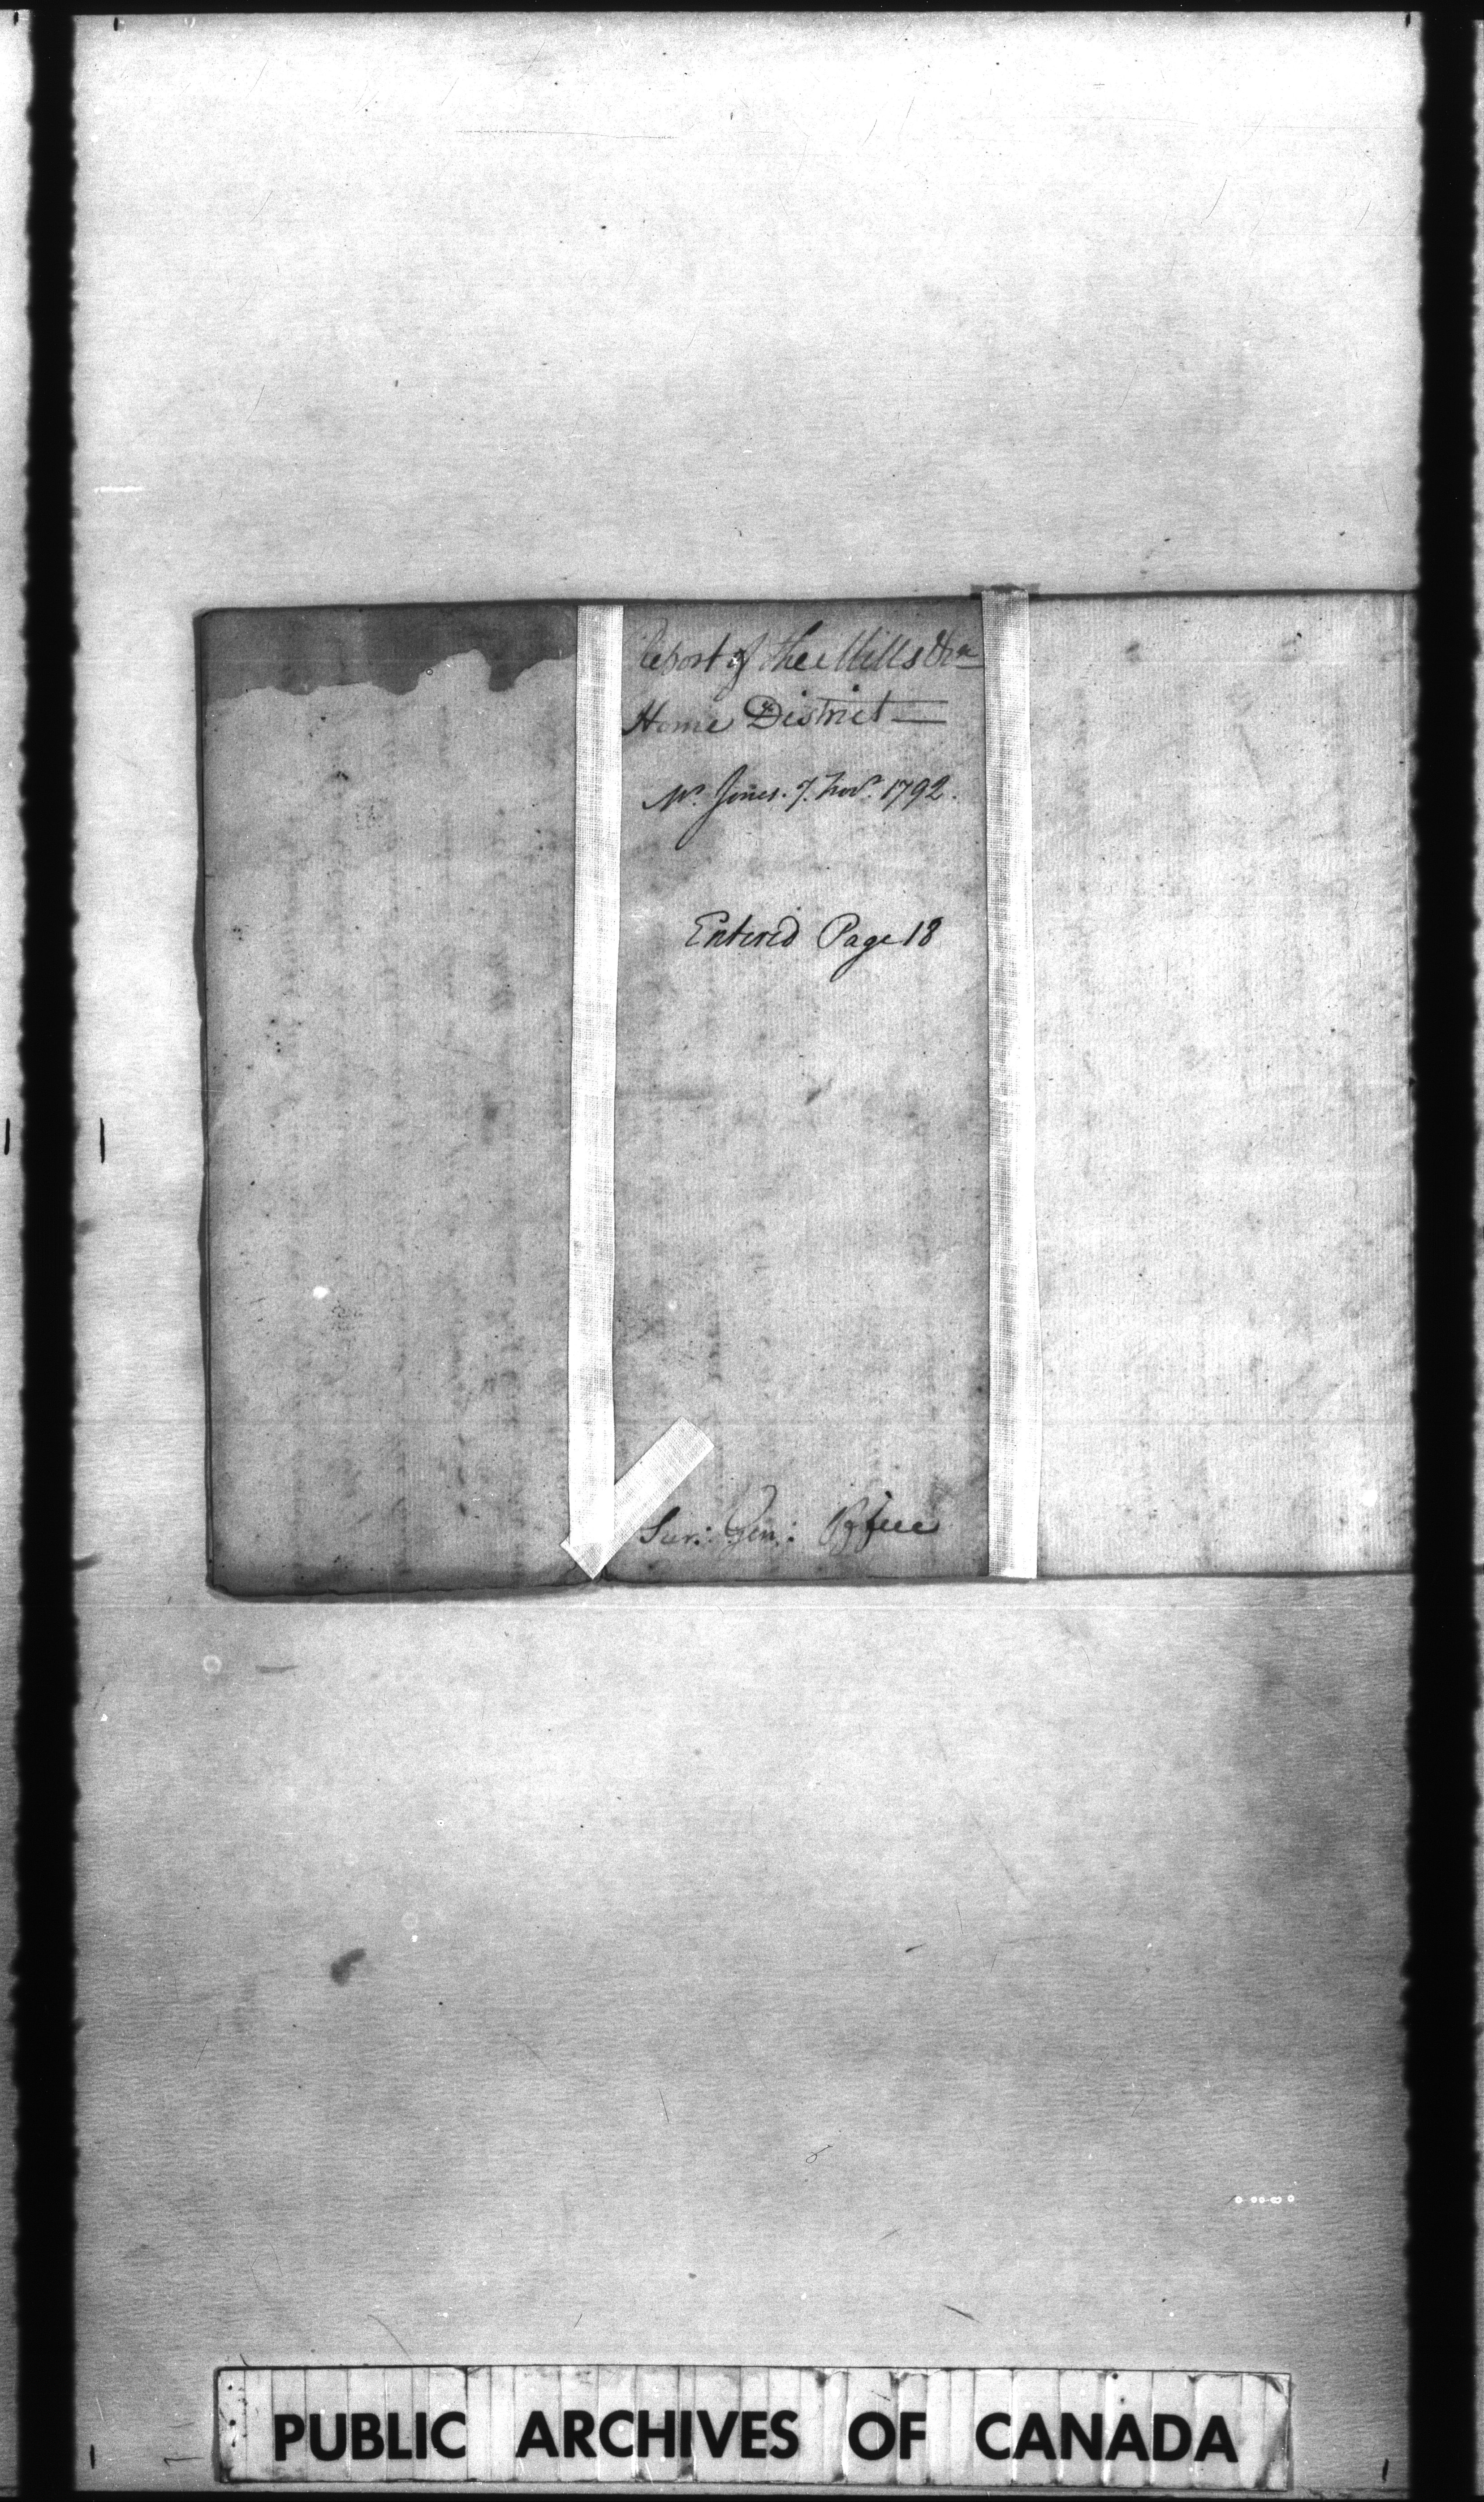 Report of the Mills &ca
Home District —
Mr. Jones. 7. Novr. 1792.
Entered Page 18
Sur: Gen: Office
PUBLIC ARCHIVES OF CANADA